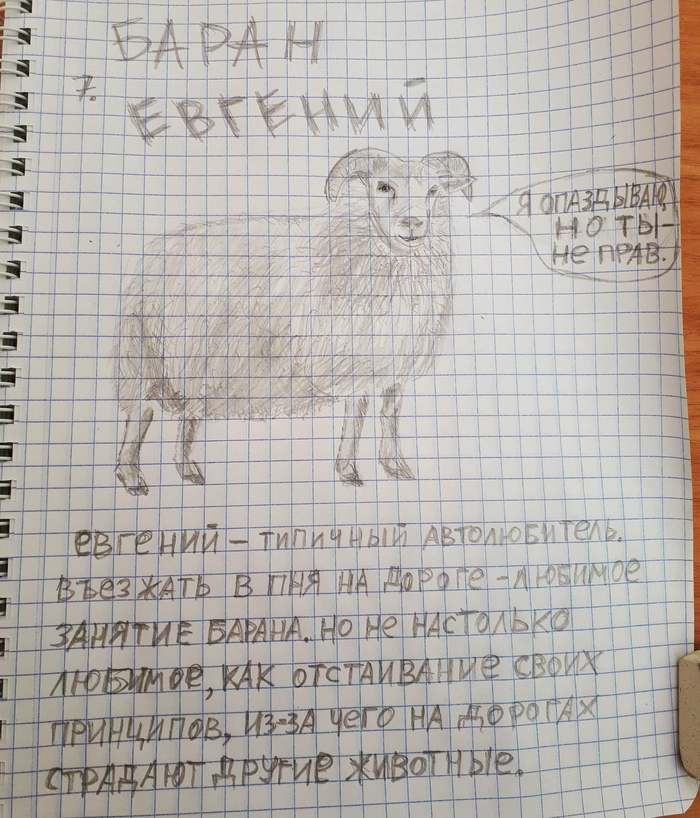 БАРАН
7.
ЕВГЕНИЙ
Я ОПАЗДЫВАЮ,
НО ТЫ-
НЕ ПРАВ.
ЕВГЕНИЙ – ТИПИЧНЫЙ АВТОЛЮБИТЕЛЬ.
ВЪЕЗЖАТЬ В ПНЯ НА ДОРОГЕ – ЛЮБИМОЕ
ЗАНЯТИЕ БАРАНА. НО НЕ НАСТОЛЬКО
ЛЮБИМОЕ, КАК ОТСТАИВАНИЕ СВОИХ
ПРИНЦИПОВ, ИЗ-ЗА ЧЕГО НА ДОРОГАХ
СТРАДАЮТ ДРУГИЕ ЖИВОТНЫЕ.